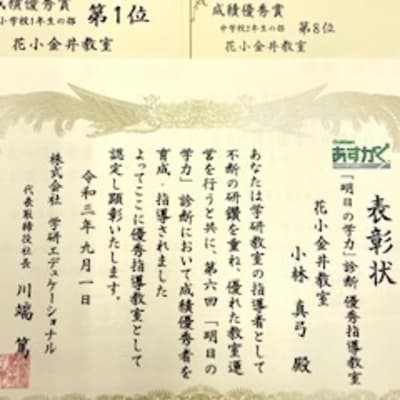 成績優秀賞
小学校1年生の部 第1位
花小金井教室
成績優秀賞
中学校2年生の部 第8位
花小金井教室
Gakken
あすがく
表彰状
「明日の学力」診断 優秀指導教室
花小金井教室
小林 真弓 殿
あなたは学研教室の指導者として
不断の研鑽を重ね、優れた教室運
営を行うと共に、第六回 「明日の
学力」診断において成績優秀者を
育成・指導されました
よってここに優秀指導教室として
認定し顕彰いたします。
令和三年九月一日
株式会社 学研エデュケーショナル
代表取締役社長 川端 篤